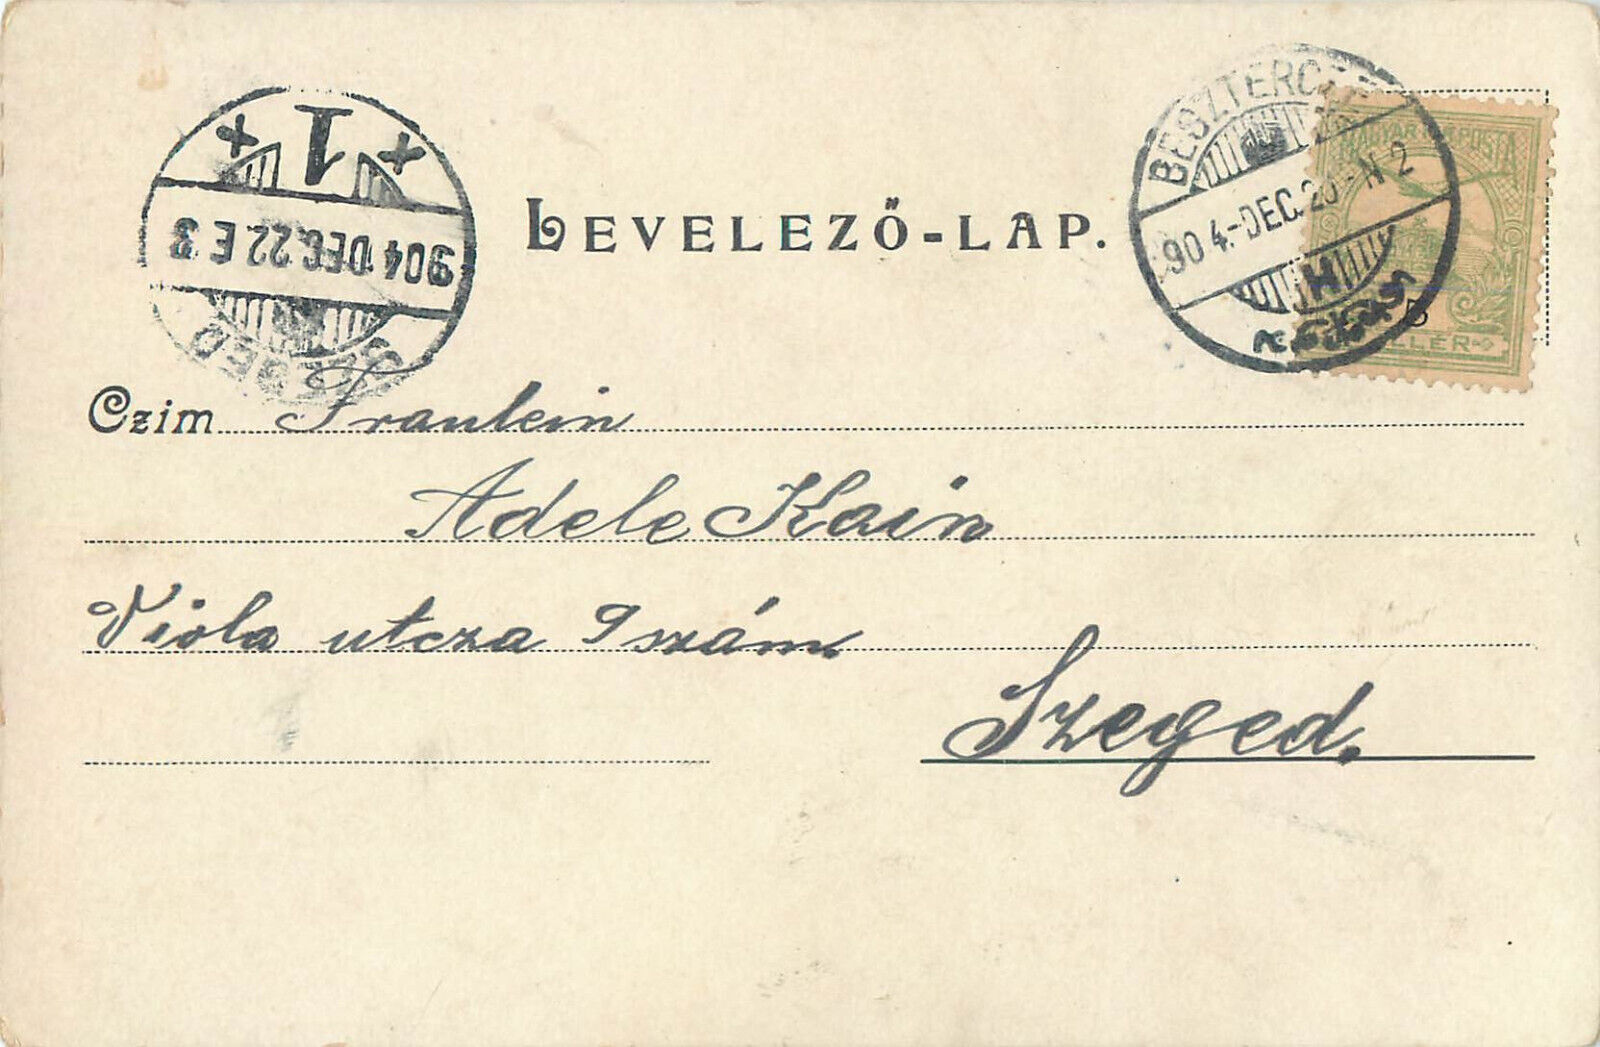 LEVELEZŐ-LAP.
BESZTERCZE
904.-DEC.20-N 2
H
MAGYAR KIR. POSTA
1
904 DEC.22 E 3
SZEGED
Czim Fraulein
Adele Kain
Viola utcza 9 szám
Szeged.